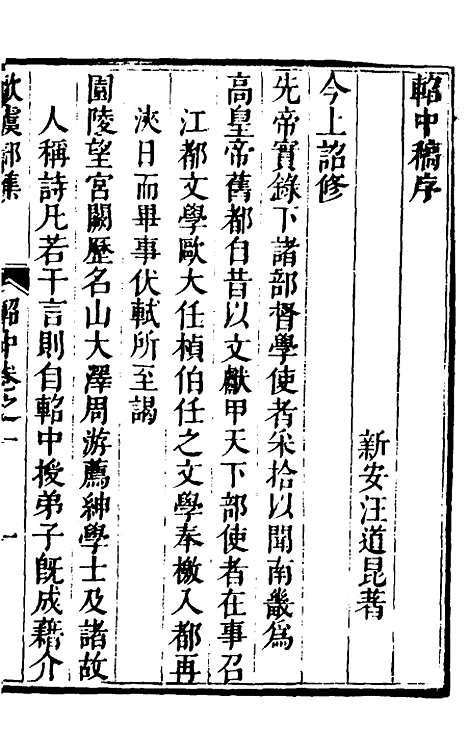 軺中稿序
新安汪道昆著
今上詔修
先帝實錄下諸部督學使者采拾以聞南畿爲
高皇帝舊都自昔以文獻甲天下部使者在事召
江都文學歐大任楨伯任之文學奉檄入都再
浹日而畢事伏軾所至謁
園陵望宮闕歷名山大澤周游薦紳學士及諸故
人稱詩凡若干言則自軺中授弟子旣成藉介
歐虞部集
軺中卷之一
一